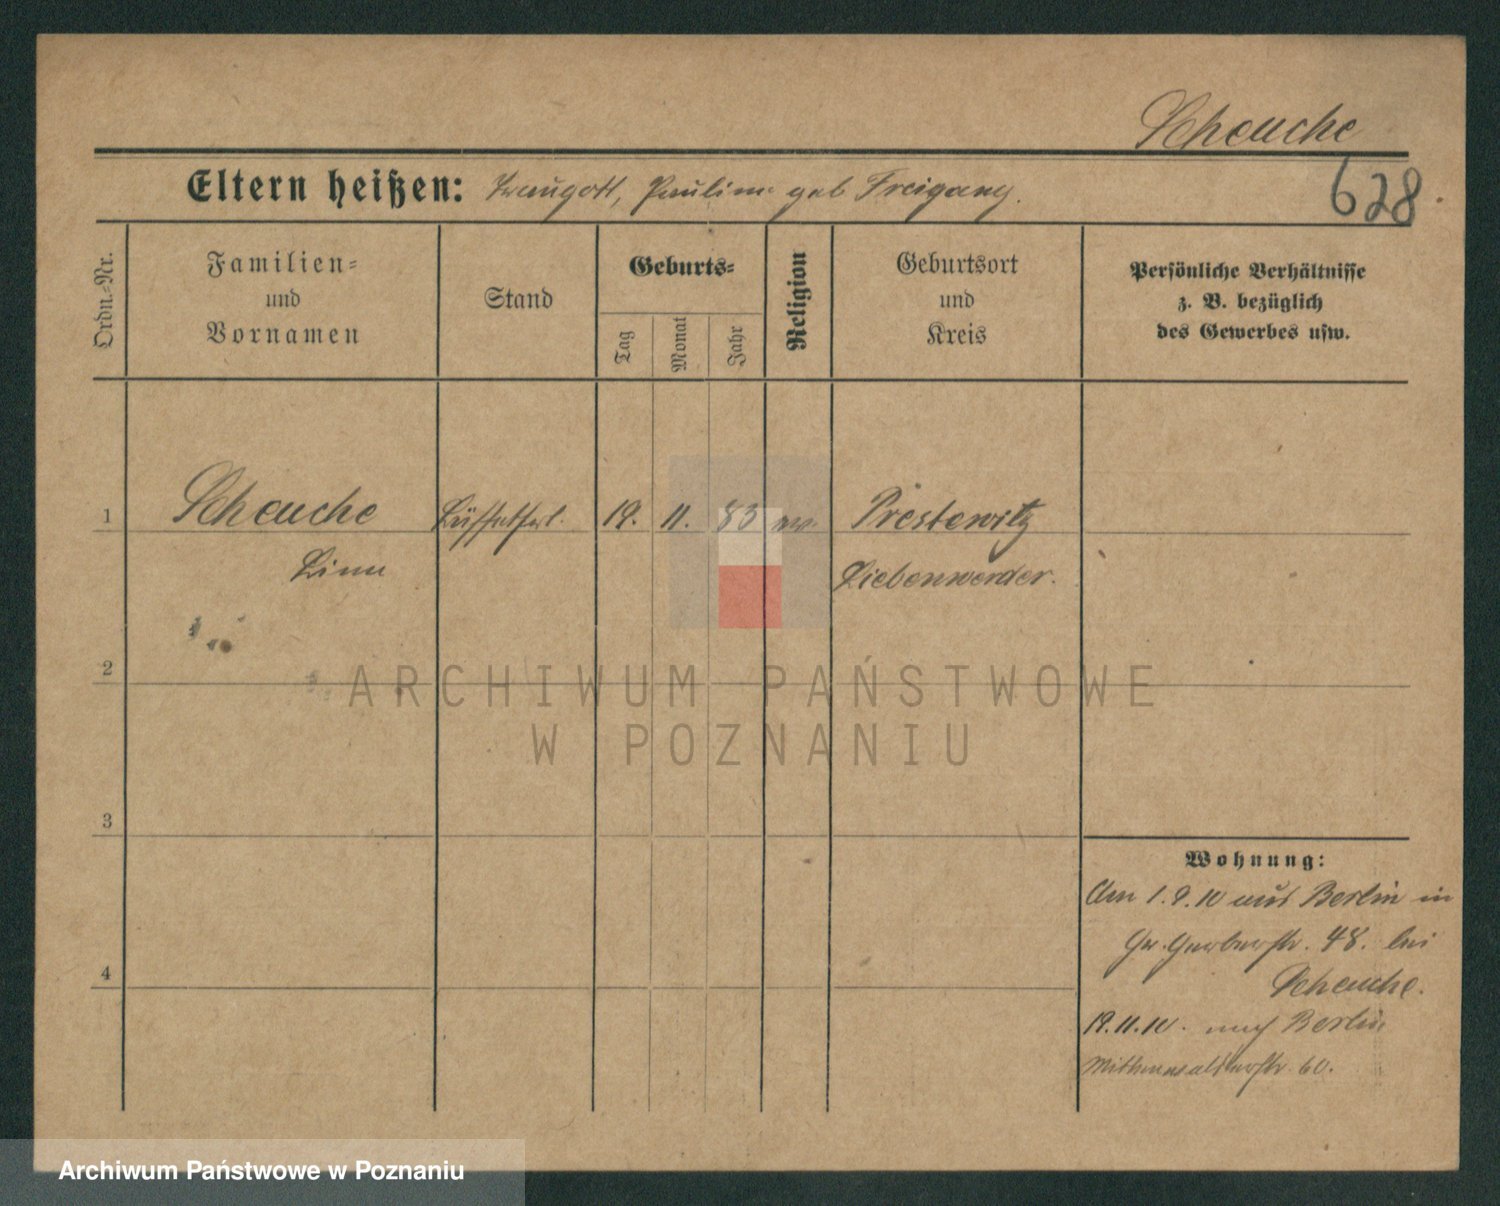 Scheuche
628.
Eltern heißen: Traugott, Pauline geb Freigang.
Ordn.=Nr.
Familien=
und
Vornamen
Stand
Geburts=
Tag
Monat
Jahr
Religion
Geburtsort
und
Kreis
Persönliche Verhältnisse
z. B. bezüglich
des Gewerbes usw.
1 Scheuche 19. 11. 83 ev. Prestewitz
Liebenwerder.
2
3
4
Wohnung:
Am 1.9.10 aus Berlin in
Gr. Gerberstr. 48. bei
Scheuche.
19.11.10. nach Berlin
Mittenwalderstr. 60.
ARCHIWUM PAŃSTWOWE
W POZNANIU
Archiwum Państwowe w Poznaniu